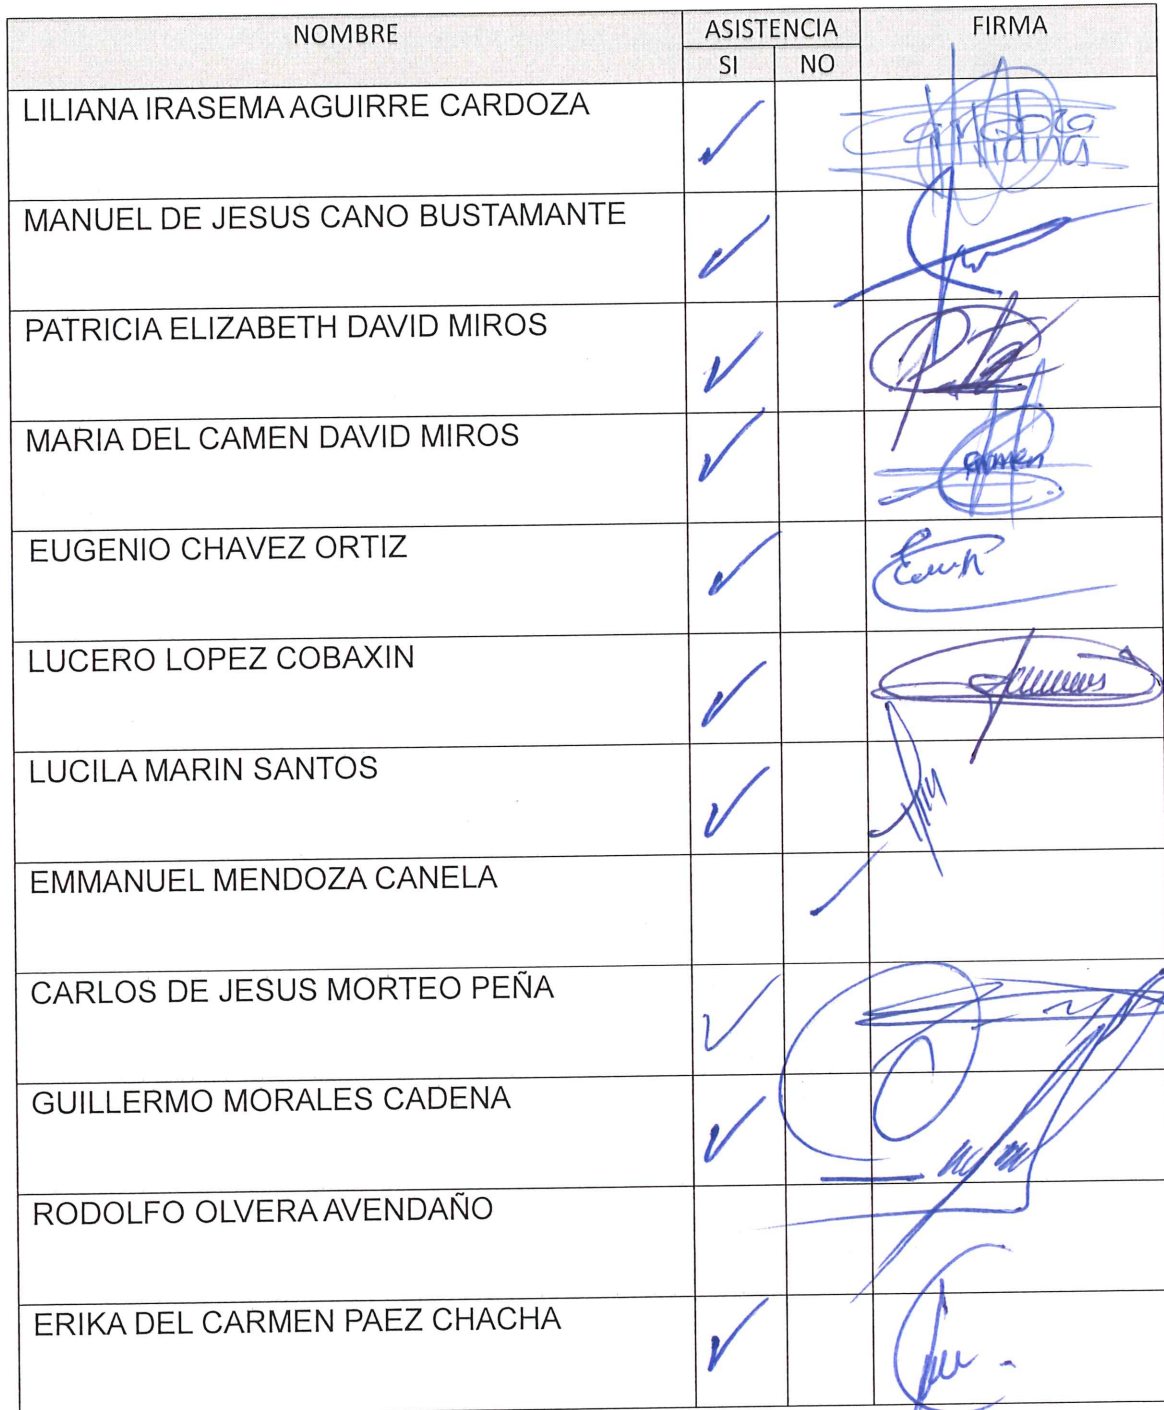 NOMBRE ASISTENCIA FIRMA
SI NO
LILIANA IRASEMA AGUIRRE CARDOZA
MANUEL DE JESUS CANO BUSTAMANTE
PATRICIA ELIZABETH DAVID MIROS
MARIA DEL CAMEN DAVID MIROS
EUGENIO CHAVEZ ORTIZ
LUCERO LOPEZ COBAXIN
LUCILA MARIN SANTOS
EMMANUEL MENDOZA CANELA
CARLOS DE JESUS MORTEO PEÑA
GUILLERMO MORALES CADENA
RODOLFO OLVERA AVENDAÑO
ERIKA DEL CARMEN PAEZ CHACHA